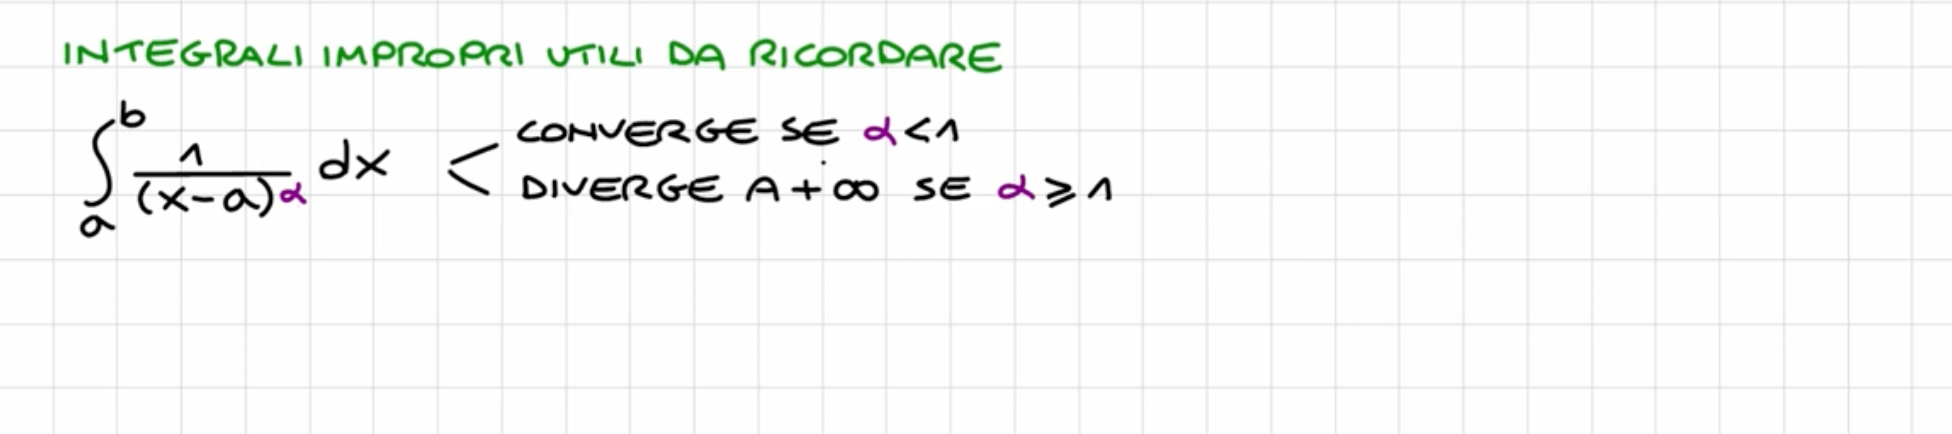 INTEGRALI IMPROPRI UTILI DA RICORDARE
∫_a^b 1/(x-a)^α dx < CONVERGE SE α<1
DIVERGE A +∞ SE α⩾1